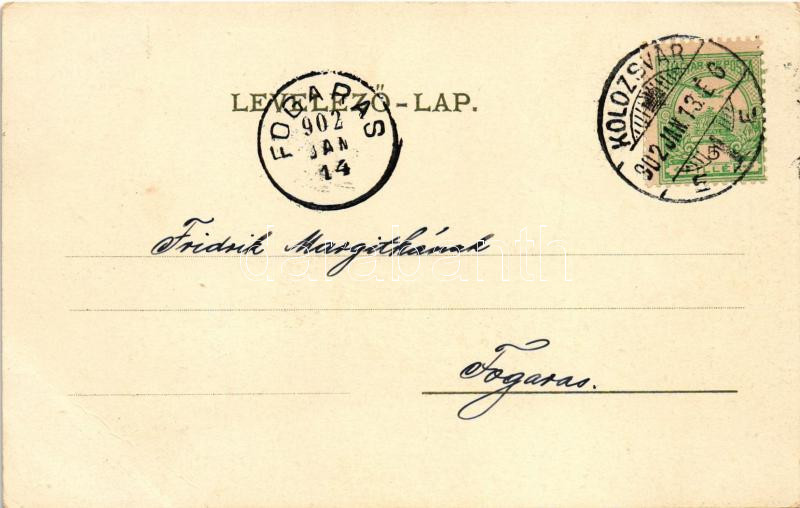 LEVELEZŐ-LAP.
FOGARAS
902
JAN
14
KOLOZSVÁR
902 JAN 13. É 6
Fridrik Margitkának
darabanth
Fogaras.